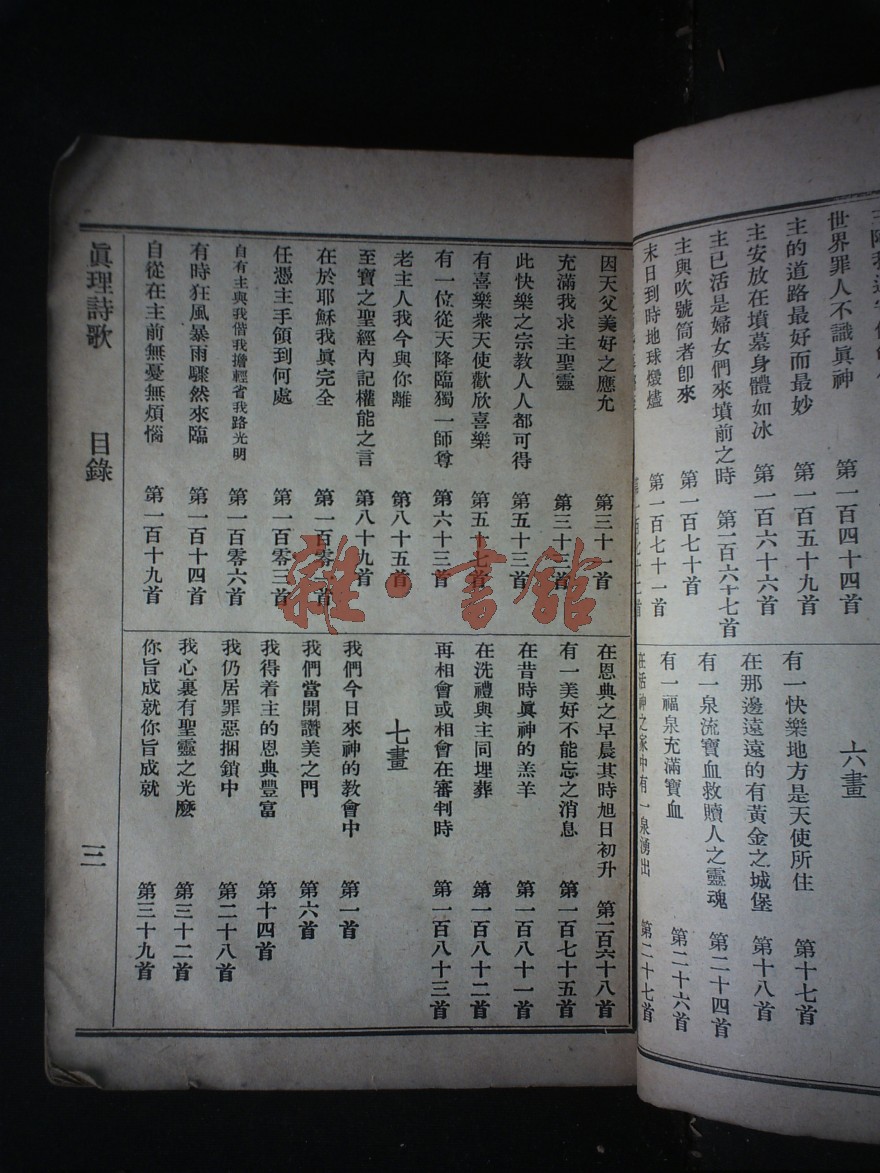 世界罪人不識眞神 第一百四十四首
主的道路最好而最妙 第一百五十九首
主安放在墳墓身體如冰 第一百六十六首
主已活是婦女們來墳前之時 第一百六十七首
主與吹號筒者卽來 第一百七十首
末日到時地球燬燼 第一百七十一首
六畫
有一快樂地方是天使所住 第十七首
在那邊遠遠的有黃金之城堡 第十八首
有一泉流寶血救贖人之靈魂 第二十四首
有一福泉充滿寶血 第二十六首
在活神之家中有一泉湧出 第二十七首
因天父美好之應允 第三十一首
充滿我求主聖靈 第三十三首
此快樂之宗教人人都可得 第五十三首
有喜樂衆天使歡欣喜樂 第五十七首
有一位從天降臨獨一師尊 第六十三首
老主人我今與你離 第八十五首
至寶之聖經內記權能之言 第八十九首
在於耶穌我眞完全 第一百零首
任憑主手領到何處 第一百零三首
自有主與我偕我擔輕省我路光明 第一百零六首
有時狂風暴雨驟然來臨 第一百十四首
自從在主前無憂無煩惱 第一百十九首
在恩典之早晨其時旭日初升 第一百六十八首
有一美好不能忘之消息 第一百七十五首
在昔時眞神的羔羊 第一百八十一首
在洗禮與主同埋葬 第一百八十二首
再相會或相會在審判時 第一百八十三首
七畫
我們今日來神的教會中 第一首
我們當開讚美之門 第六首
我得着主的恩典豐富 第十四首
我仍居罪惡捆鎖中 第二十八首
我心裏有聖靈之光麽 第三十二首
你旨成就你旨成就 第三十九首
眞理詩歌 目錄 三
雜·書館